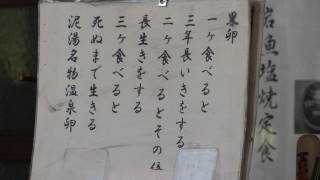 黒卵
一ヶ食べると
三年長いきをする
二ヶ食べるとその倍
長生きをする
三ヶ食べると
死ぬまで生きる
泥湯名物温泉卵
岩魚塩焼定食